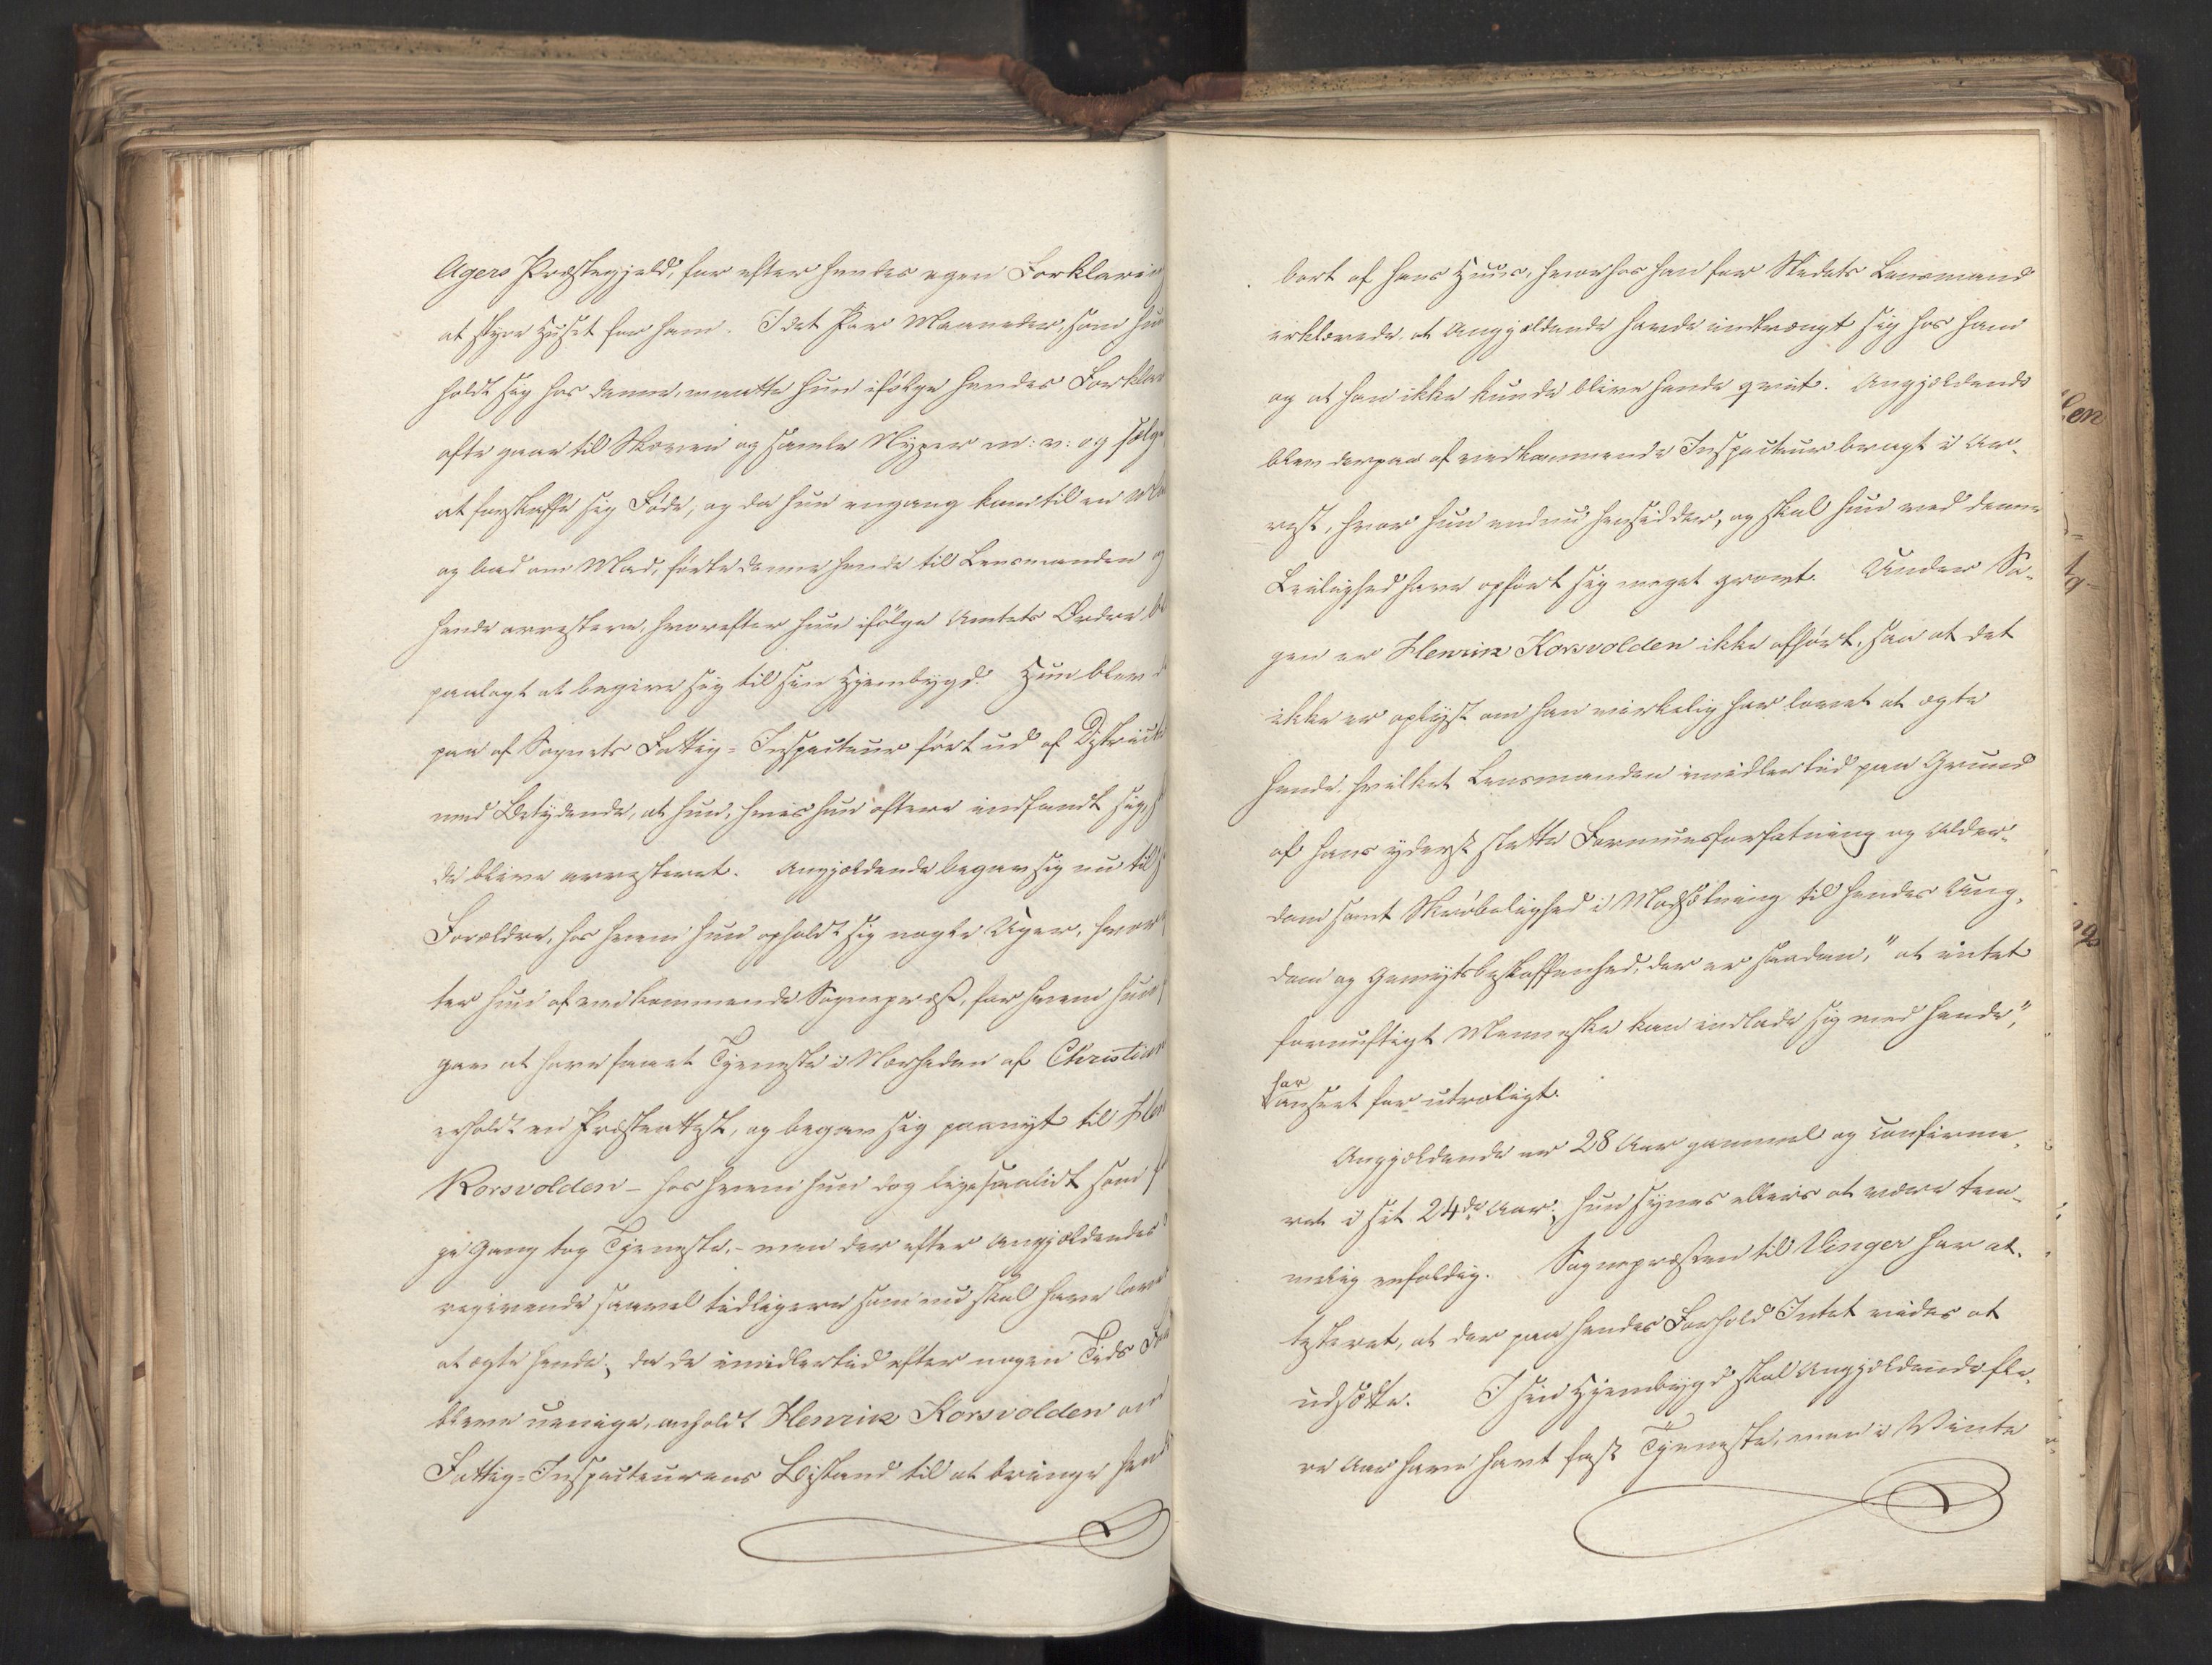 Agers Præstegjeld, for efter hendes egen Forklaring
at styre Huset for ham. I det Par Maaneder, som hun
holdt sig hos denne, maatte hun ifölge hendes Forklar
ofte gaae til Skoven og samle Nyper m: v: og sælge
at forskaffe sig Föde, og da hun engang kom til en
og bad om Mad, förte denne hende til Lensmanden og
hende arrestere, hvorefter hun ifölge Amtets Ordre bl
paalagt at begive sig til sin Hjembygd. Hun blev d
paa af Sognets Fattig-Inspecteur fört ud af District
med Betydende, at hun, hvis hun oftere indfandt sig,
de blive arresteret. Angjældende begav sig nu til
Forældre, hos hvem hun opholdt sig nogle Uger, hvor
ter hun af vedkommende Sognepræst, for hvem hun
gav at have faaet Tjeneste i Nærheden af Christian
erholdt en Præsteattest, og begav sig paanyt til Hen
Korsvolden – hos hvem hun dog ligesaalidt som f
ge Gang tog Tjeneste, – men der efter Angjældendes
regivende saavel tidligere som nu skal have lovet
at ægte hende; da de imidlertid efter nogen Tids
bleve uenige, anholdt Henrik Korsvolden om
Fattig-Inspecteurens Bistand til at bringe hend
bort af hans Huus, hvorhos han for Stedets Lensmand
erklærede, at Angjældende havde indtrængt sig hos ham
og at han ikke kunde blive hende qvit. Angjældende
blev derpaa af vedkommende Inspecteur bragt i Ar-
rest, hvor hun endnu hensidder, og skal hun ved denne
Leilighed have opfört sig meget gromt. Under Sa-
gen er Henrik Korsvolden ikke afhört, saa at det
ikke er oplyst om han virkelig har lovet at ægte
hende, hvilket Lensmanden imidlertid paa Grund
af hans yderst slette Formuesforfatning og Alder-
dom samt Skröbelighed i Modsætning til hendes Ung-
dom og Gemytsbeskaffenhed, der er saadan, "at intet
fornuftigt Menneske kan indlade sig med hende",
har
anseet for utroligt.
Angjældende er 28 Aar gammel og confirme-
ret i sit 24de Aar; hun synes ellers at være tem-
melig enfoldig. Sognepræsten til Vinger har at-
testeret, at der paa hendes Forhold Intet vides at
udsætte. I sin Hjembygd skal Angjældende fle-
re Aar have havt fast Tjeneste, men i Vinte